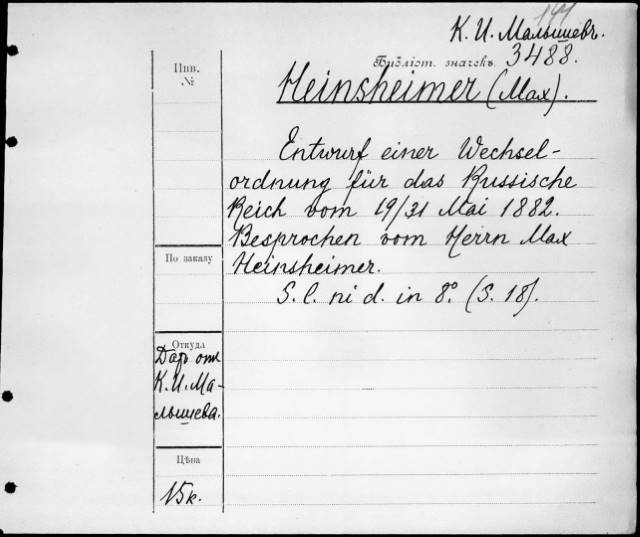 191
К. И. Малышевъ.
Инв.
№
Библіот. значекъ 3488.
Heinsheimer (Max).
Entwurf einer Wechsel-
ordnung für das Russische
Reich vom 19/31 Mai 1882.
Besprochen vom Herrn Max
Heinsheimer.
S. l. ni d. in 8º. (S. 18).
По заказу
Откуда
Даръ отъ
К. И. Ма-
лышева.
Цѣна
15к.